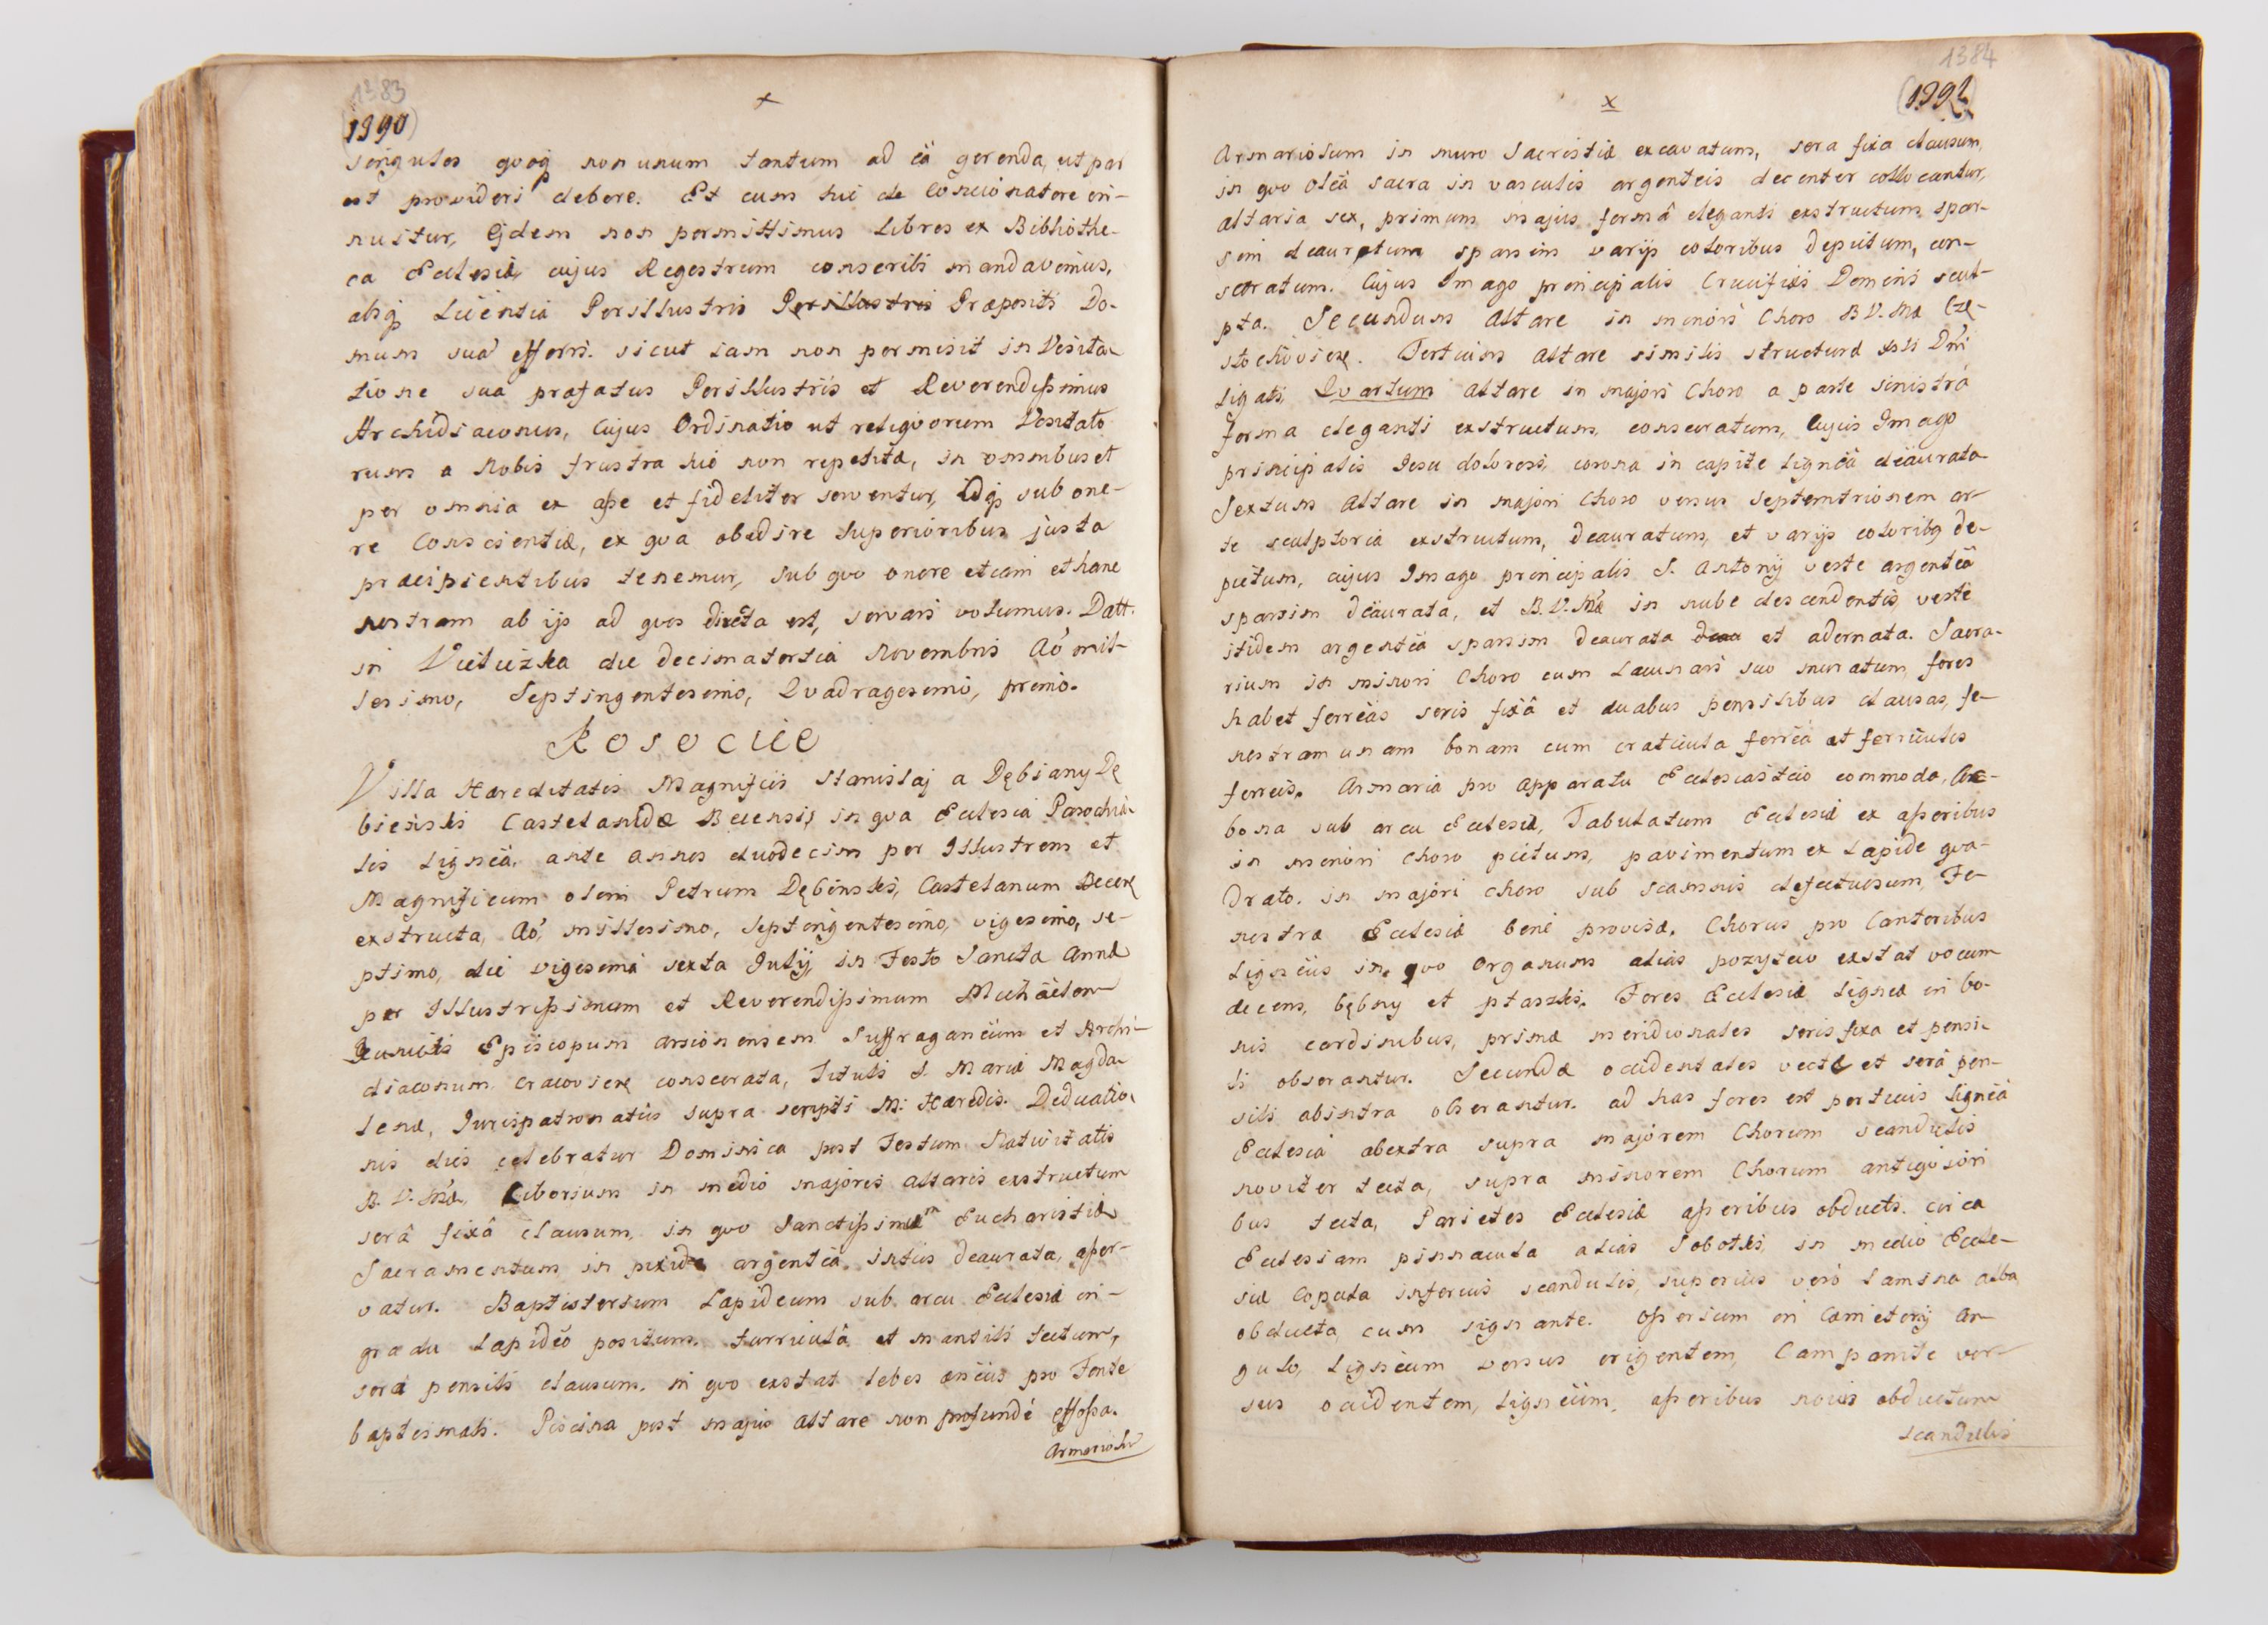 1383
(1390)
+
singulos qvoq non unum tantum ad eä gerenda, ut par
est provideri debere. Et cum hic de Concionatore in-
nuitur, Ejdem non permittimus Libros ex Bibliothe-
ca Ecclesiæ cujus Regestrum conscribi mandavimus,
absq Licentia Perillustris Perillustris Præpositi Do-
mum suâ efferri. sicut iam non permisit in Visita-
tione sua præfatus Perillustris et Reverendissimus
Archidiaconus, Cujus Ordinatio ut reliqvorum Visitato
rum a Nobis frustra hic non repetitæ, in omnibus et
per omnia ex asse et fideliter serventur, Idq sub one-
re Conscientiæ, ex qva obedire Superioribus justa
præcipientibus tenemur, Sub qvo onere etiam et hanc
nostram ab ijs ad qvos directa est, servari volumus. Datt.
in Vielicżka die decima tertia Novembris Aõ mil-
lesimo, Septingentesimo, Qvadragesimo, primo.
Rosocice
Villa Hæreditatis Magnificis Stanislaj a Dębiany Dę
bienski Castelanidæ Becensis, in qva Ecclesia Parochia-
lis Lignëa, ante annos duodecim per Illustrem et
Magnificum olim Petrum Dębinski, Castelanum Becen
exstructa, Aõ, millesimo, Septingentesimo, vigesimo, se-
ptimo, die vigesimâ sexta Julij, in Festo Sancta Annæ
per Illustrissimum et Reverendissimum Michäelem
Kunicki Episcopum arsionensem Suffraganëum et Archi-
diaconum Cracovien consecrata, Tituli S. Mariæ Magda-
lenæ, Jurispatronatûs supra scripti M: Hæredis. Dedicatio-
nis dies celebratur Dominica post Festum Nativitatis
B. V. Mæ, Ciborium in medio majoris altaris exstructum
serâ fixâ clausum, in qvo Sanctissimæ m Eucharistiæ
Sacramentum in pixide argentëa intus deaurata, asser-
vatur. Baptisterium Lapideum sub arcu Ecclesiæ in-
gradu Lapidëo positum, turriculâ et mantili tectum,
sera pensili clausum. in qvo exstat lebes ænëus pro Fonte
baptismati. Piscina post majus altare non profundè effossa.
Armariolu
1384
(1391)
x
Armariolum in muro Sacristiæ excavatum, sera fixa clausum,
in qvo Olëa sacra in vasculis argenteis decenter collocantur,
altaria sex, primum majus formâ eleganti exstructum, spar-
sim deauratum sparsim varijs coloribus depictum, con-
secratum. Cujus Imago principalis Crucifixi Domini scul-
pta. Secundum Altare in minori Choro B V. Mæ Czę-
stochovien. Tertium Altare similis structuræ Xsti Dni
ligati, Qvartum altare in majori Choro a parte sinistrâ
forma eleganti exstructum, consecratum, Cujus Imago
principalis Jesu dolorosi, corona in capite lignëa dëaurata
Sextum Altare in majori Choro versus septemtrionem ar-
te sculptoria exstructum, deauratum, et varijs coloribq de-
pictum, cujus Imago principalis S. Antonij veste argentëâ
sparsim dëaurata, et B. V. Mæ in nube descendentis, veste
itidem argentëâ sparsim deaurata deau et adornata. Sacra-
rium in minori Choro cum Lacunari suo muratum, fores
habet ferrëas seris fixâ et duabus pensilibus clausas, fe-
nestram unam bonam cum craticula ferrëâ et ferriculis
ferreis. Armaria pro apparatu Ecclesiastico commoda, Cru-
bona sub arcu Ecclesiæ, Tabulatum Ecclesiæ ex asseribus
in minori Choro pictum, pavimentum ex Lapide qva-
drato. in majori choro sub scamnis defectuosum, Fe-
nestræ Ecclesiæ benè provisæ. Chorus pro Cantoribus
Lignëus in qvo Organum alias pozytiw exstat vocum
decem, bębny et ptaszki. Fores Ecclesiæ Ligneæ in bo-
nis cardinibus, primæ meridionales seris fixa et pensi-
li obserantur. Secundæ occidentales vecte et serâ pen-
sili abintra obserantur. ad has fores est porticus Lignëâ
Ecclesia abextra supra majorem Chorum scandulis
noviter tecta, supra minorem Chorum antiqviori
bus tecta, Parietes Ecclesiæ asseribus obducti. circa
Ecclesiam pinnacula alias Sobotki, in medio Eccle-
siæ Copula inferius scandulis, superius verò lamina alba
obducta, cum signante. Ossorium in Cæmeterij an-
gulo, Lignëum versus orientem, Campanile ver-
sus occidentem, Lignëum, asseribus novis obductum
scandulis